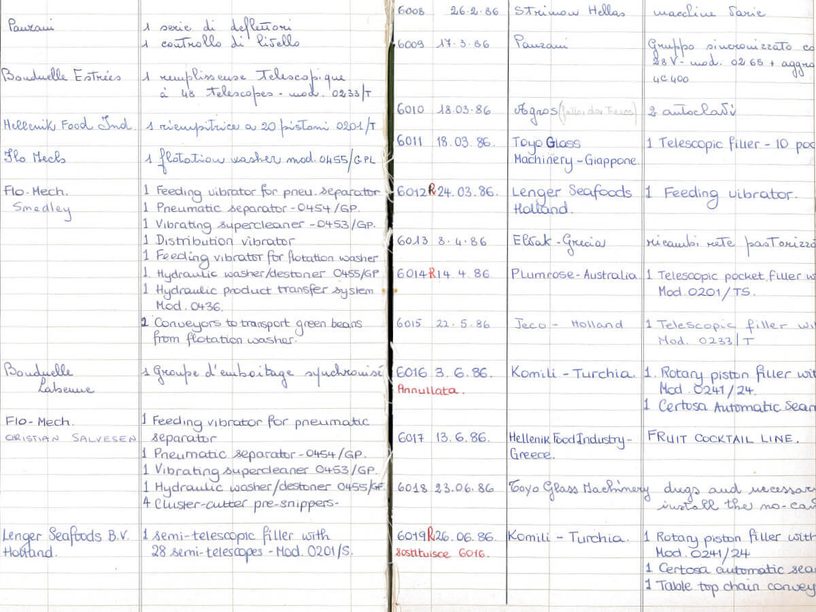 Panzani 1 serie di deflettori
1 controllo di livello
Bonduelle Estrées 1 remplisseuse Telescopique
à 48 Telescopes - mod. 0233/T
Hellenik Food Ind. 1 riempitrice a 20 pistoni 0201/T
Flo Mech 1 flotation washer mod. 0455/GPL
Flo-Mech. 1 Feeding vibrator for pneu. separator
Smedley 1 Pneumatic separator - 0454/GP.
1 Vibrating supercleaner - 0453/GP.
1 Distribution vibrator
1 Feeding vibrator for flotation washer
1 Hydraulic washer/destoner 0455/GP
1 Hydraulic product transfer system
Mod. 0436.
2 Conveyors to transport green beans
from flotation washer.
Bonduelle 1 Groupe d'emboitage synchronisé
Labenne
Flo-Mech. 1 Feeding vibrator for pneumatic
CRISTIAN SALVESEN separator
1 Pneumatic separator - 0454/GP.
1 Vibrating supercleaner 0453/GP.
1 Hydraulic washer/destoner 0455/GP
4 Cluster-cutter pre-snippers-
Lenger Seafoods B.V. 1 semi-telescopic filler with
Holland. 28 semi-telescopes - Mod. 0201/S.
6008 26.2.86 Strimon Hellas macchine varie
6009 17.3.86 Panzani Gruppo sincronizzato co
28 V - mod. 02 65 + aggra
4C400
6010 18.03.86 Agros 2 autoclavi
6011 18.03.86. Toyo Glass 1 Telescopic filler - 10 poc
Machinery - Giappone.
6012 R 24.03.86. Lenger Seafoods 1 Feeding vibrator.
Holland.
6013 8.4.86 Elsak - Grecia ricambi rete pastorizza
6014 R 14.4.86 Plumrose - Australia. 1 Telescopic pocket filler w
Mod. 0201/TS.
6015 22.5.86 Jeco - Holland 1 Telescopic filler wi
Mod. 0233/T
6016 3.6.86. Komili - Turchia. 1. Rotary piston filler wit
Annullata. Mod. 0241/24.
1 Certosa Automatic seam
6017 13.6.86. Hellenik Food Industry- FRUIT COCKTAIL LINE.
Greece.
6018 23.06.86 Toyo Glass Machinery dwgs and necessar
install the no-ca
6019 R 26.06.86. Komili - Turchia. 1 Rotary piston filler with
sostituisce 6016. Mod. 0241/24
1 Certosa automatic sea
1 Table top chain convey